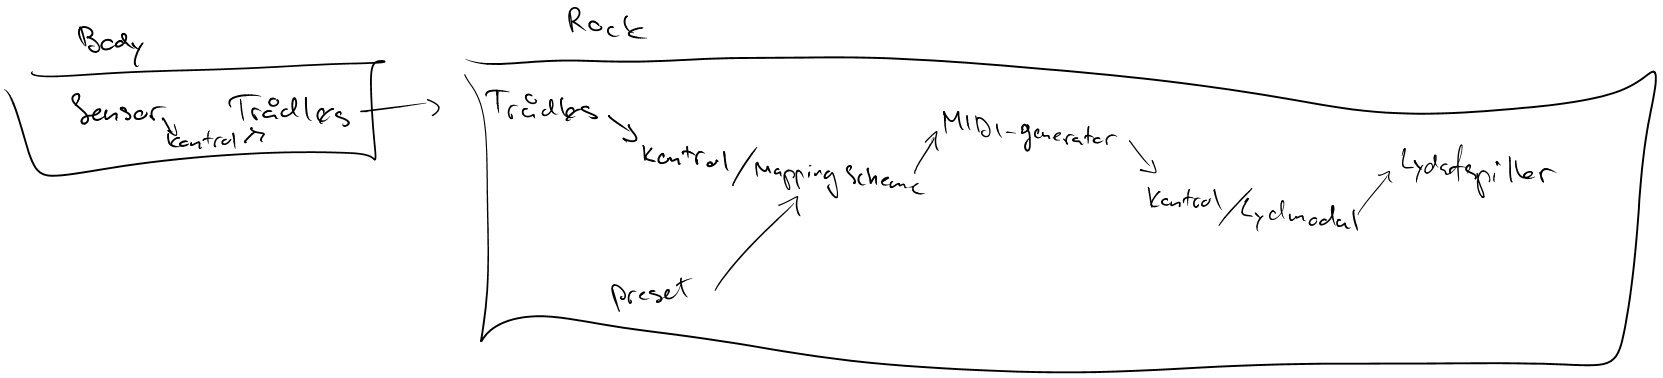 Body
Sensor
Kontrol
Trådløs
Rock
Trådløs
Kontrol/Mapping Scheme
preset
MIDI-generator
Kontrol/Lydmodul
Lydafspiller